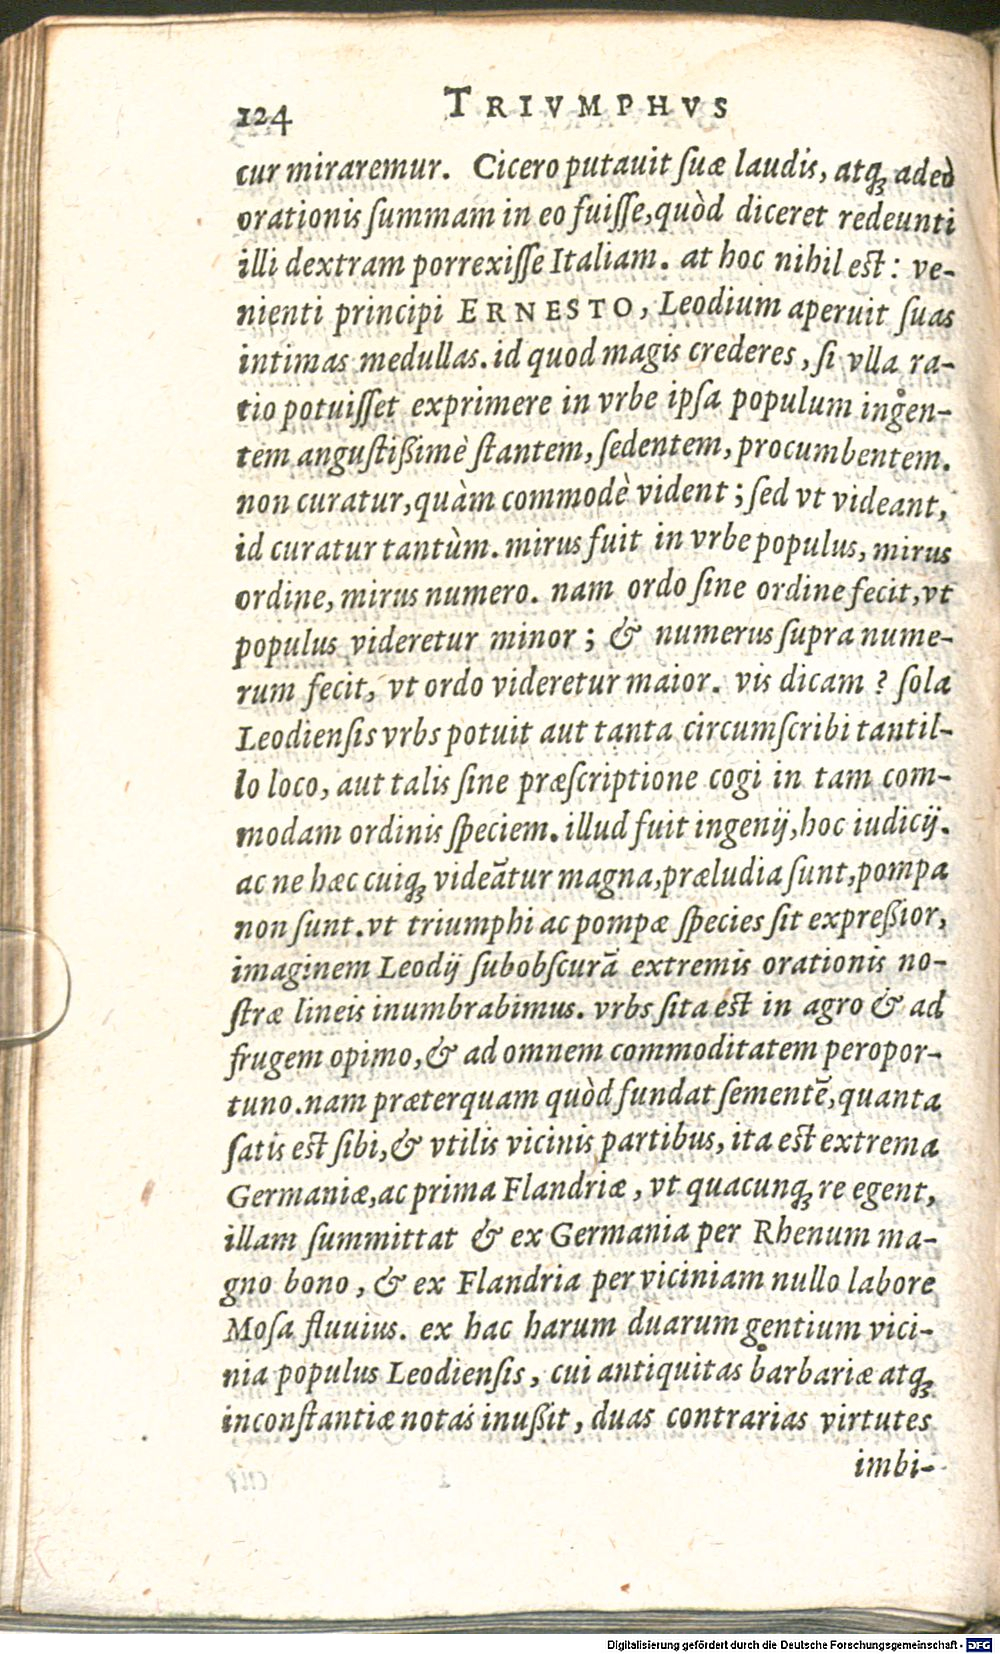 124 TRIVMPHVS
cur miraremur. Cicero putauit ſuæ laudis, atq; adeò
orationis ſummam in eo fuiſſe, quòd diceret redeunti
illi dextram porrexiſſe Italiam. at hoc nihil eſt: ve-
nienti principi ERNESTO, Leodium aperuit ſuas
intimas medullas. id quod magis crederes, ſi vlla ra-
tio potuiſſet exprimere in vrbe ipſa populum ingen-
tem anguſtißimè ſtantem, ſedentem, procumbentem.
non curatur, quàm commodè vident; ſed vt videant,
id curatur tantùm. mirus fuit in vrbe populus, mirus
ordine, mirus numero. nam ordo ſine ordine fecit, vt
populus videretur minor; & numerus ſupra nume-
rum fecit, vt ordo videretur maior. vis dicam? ſola
Leodienſis vrbs potuit aut tanta circumſcribi tantil-
lo loco, aut talis ſine præſcriptione cogi in tam com-
modam ordinis ſpeciem. illud fuit ingenij, hoc iudicij.
ac ne hæc cuiq; videãtur magna, præludia ſunt, pompa
non ſunt. vt triumphi ac pompæ ſpecies ſit expreßior,
imaginem Leodij ſubobſcurã extremis orationis no-
ſtræ lineis inumbrabimus. vrbs ſita eſt in agro & ad
frugem opimo, & ad omnem commoditatem peropor-
tuno. nam præterquam quòd fundat ſementẽ, quanta
ſatis eſt ſibi, & vtilis vicinis partibus, ita eſt extrema
Germaniæ, ac prima Flandriæ, vt quacunq; re egent,
illam ſummittat & ex Germania per Rhenum ma-
gno bono, & ex Flandria per viciniam nullo labore
Moſa fluuius. ex hac harum duarum gentium vici-
nia populus Leodienſis, cui antiquitas barbariæ atq;
inconſtantiæ notas inußit, duas contrarias virtutes
imbi-
Digitalisierung gefördert durch die Deutsche Forschungsgemeinschaft - DFG